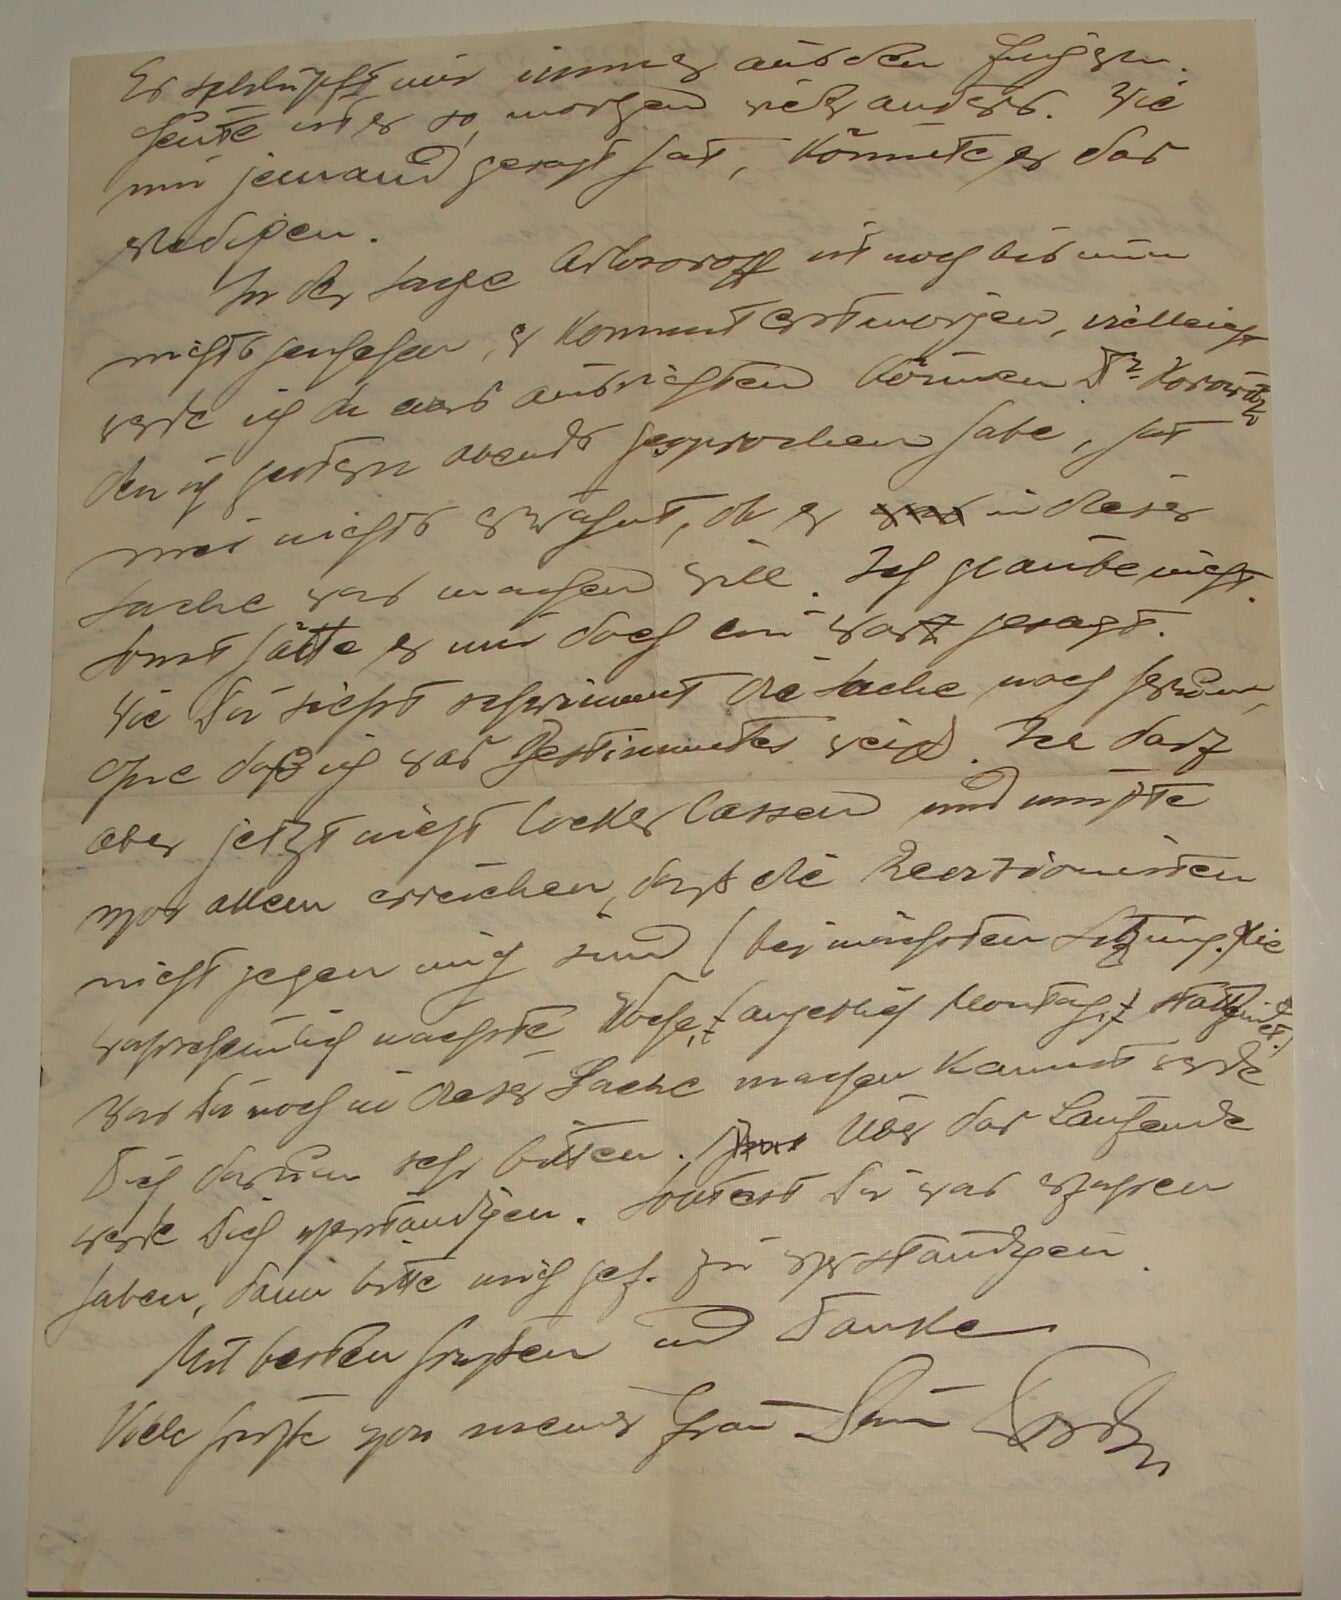 Er schlüpft mir immer aus den Fingern.
Heute ist er so, morgen wieder anders. Wie
mir jemand gesagt hat, könnte er das
erledigen.
In der Sache Arlosoroff ist noch bis nun
nichts geschehen, er kommt erst morgen, vielleicht
werde ich da was ausrichten können. Dr. Horowitz
den ich gestern abends gesprochen habe, hat
mir nichts erwähnt, ob er in dieser
Sache was machen will. Ich glaube nicht.
Sonst hätte er mir doch ein Wort gesagt.
Wie Du siehst schwimmt die Sache noch herum,
ohne daß ich was Bestimmtes weiß. Ich darf
aber jetzt nicht locker lassen und müßte
vor allem erreichen, daß die Revisionisten
nicht gegen mich sind (bei nächsten Sitzung, die
wahrscheinlich nächste Woche, (angeblich Montag,) stattfindet.)
Was Du noch in dieser Sache machen kannst werde
Dich darum sehr bitten. Über das Laufende
werde Dich verständigen. Solltest Du was erfahren
haben, dann bitte mich gef. zu verständigen.
Mit besten Grüßen und Danke
Viele Grüße von meiner Frau Dein